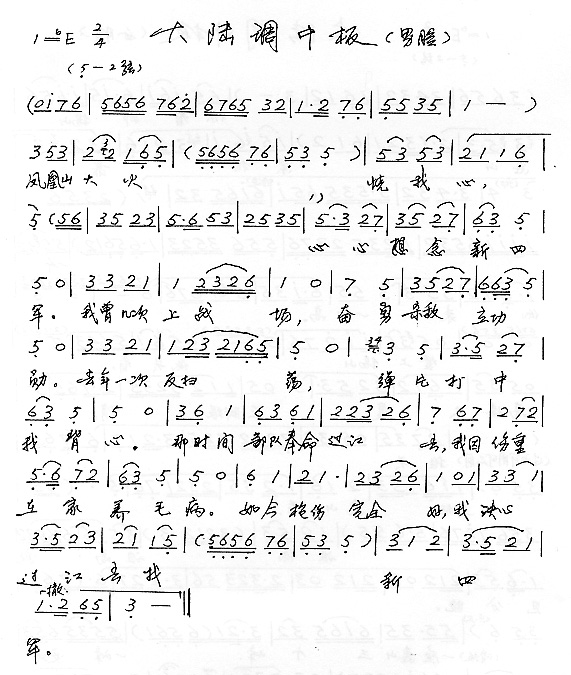 1=ᵇE 2/4 大陆调中板(男腔)
(5-2弦)
(0i76|5656 762|6765 32|1·2 76|5535|1 — )
353|2 2 165|(5656 76|53 5 )|53 53|2116|
凤凰山大火 烧我心,
5(56|35 23|5·6 53|2535|5·3 27|35 27|63 5|
心心想念新四
50|33 21|1 2326|1 0|7 5|3527|663 5|
军。我曾几次上战 场,奋勇杀敌立功
50|33 21|123 2165|5 0|3 5|3·5 27|
勋。去年一次反扫 荡,弹片打中
63 5|5 0|36 1|63 61|223 26|7 67|272|
我背心。那时间部队奉命过江 去,我因伤重
5·6 72|63 5|50|61|21·|23 26|101|33 1|
在家养毛病。如今枪伤完全好,我决心
3·5 23|21 15|(5656 76|53 5 )|312|3·521|
过江去找 新四
1·2 65|3 —‖
军。